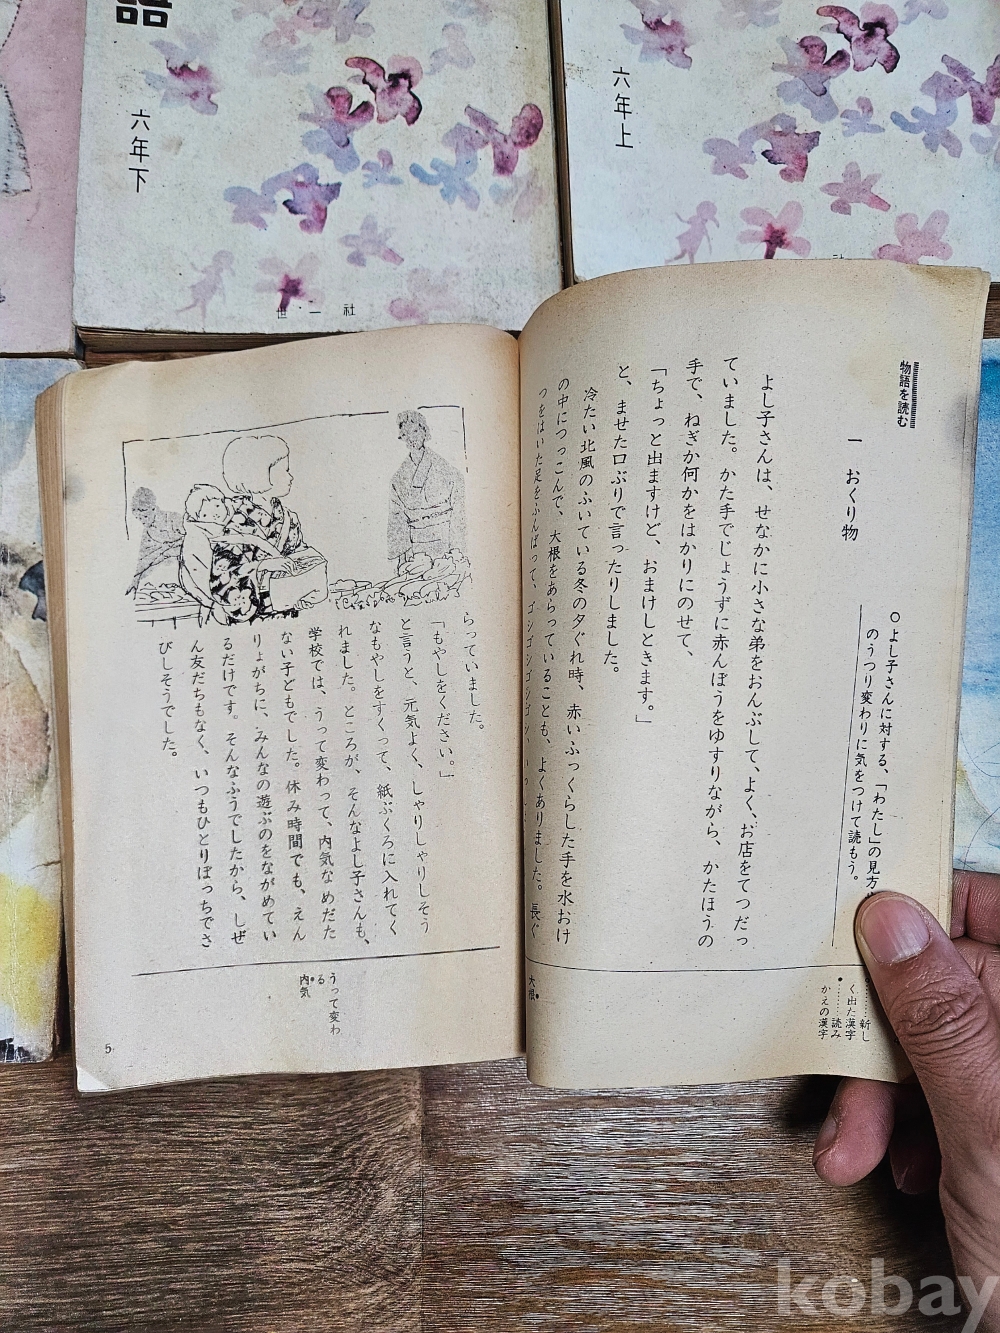 語
六年下
世一社
六年上
社
物語を読む
一 おくり物
○よし子さんに対する、「わたし」の見方
のうつり変わりに気をつけて読もう。
よし子さんは、せなかに小さな弟をおんぶして、よく、お店をてつだっ
ていました。かた手でじょうずに赤んぼうをゆすりながら、かたほうの
手で、ねぎか何かをはかりにのせて、
「ちょっと出ますけど、おまけしときます。」
と、ませた口ぶりで言ったりしました。
冷たい北風のふいている冬の夕ぐれ時、赤いふっくらした手を水おけ
の中につっこんで、大根をあらっていることも、よくありました。長ぐ
つをはいた足をふんばって、ゴシゴシゴシゴシ、
……新し
く出た漢字
・……読み
かえの漢字
大根
らっていました。
「もやしをください。」
と言うと、元気よく、しゃりしゃりしそう
なもやしをすくって、紙ぶくろに入れてく
れました。ところが、そんなよし子さんも、
学校では、うって変わって、内気なめだた
ない子どもでした。休み時間でも、えん
りょがちに、みんなの遊ぶのをながめてい
るだけです。そんなふうでしたから、しぜ
ん友だちもなく、いつもひとりぼっちでさ
びしそうでした。
うって変わ
る
内気
5
kobay